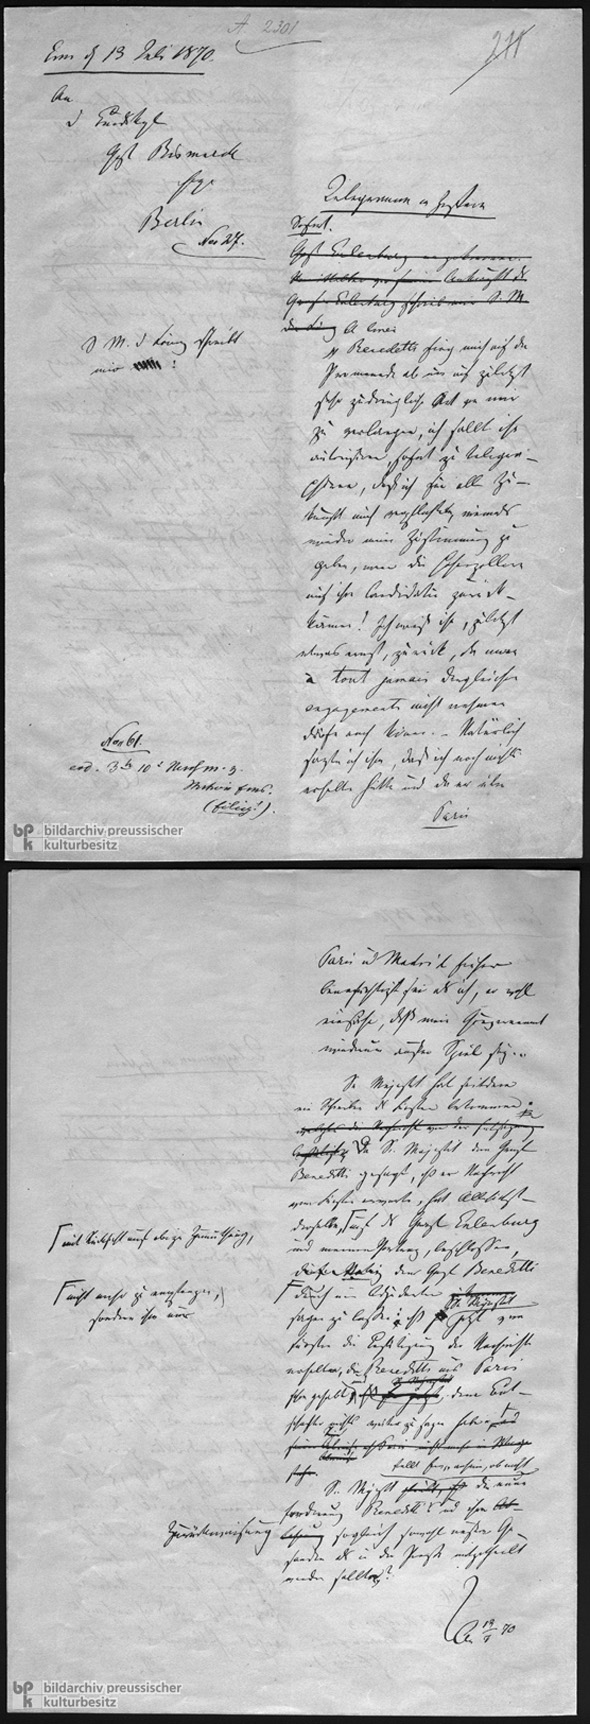 A 2301
211
Ems d 13 Juli 1870.
An
d Bundeskzl
Graf Bismarck
Berlin
No 27.
S M. d König schreibt
mir :
No 61.
(eilig!).
Telegramm in Ziffern
Sofort.
Graf Benedetti fing mich auf der
Promenade ab um auf zuletzt
sehr zudringliche Art von mir
zu verlangen, ich sollte ihn
autorisiren, sofort zu telegra-
phiren, daß ich für alle Zu-
kunft mich verpflichte, niemals
wieder meine Zustimmung zu
geben, wenn die Hohenzollern
auf ihre Candidatur zurück-
kämen! Ich wies ihn, zuletzt
etwas ernst, zurück, da man
à tout jamais dergleichen
engagements nicht nehmen
dürfe noch könne. – Natürlich
sagte ich ihm, daß ich noch nichts
erhalten hätte und da er über
Paris
bildarchiv preussischer
kulturbesitz
Paris und Madrid früher
benachrichtigt sei als ich, er wohl
einsähe, daß mein Gouvernement
wiederum außer Spiel sei.
Se Majestät hat seitdem
ein Schreiben des Fürsten bekommen.
Da Se Majestät dem Graf
Benedetti gesagt, daß er Nachricht
vom Fürsten erwarte, hat Allerhöchst-
derselbe, auf des Graf Eulenburg
und meinen Vortrag, beschlossen,
mit Rücksicht auf obige Zumuthung,
den Graf Benedetti
nicht mehr zu empfangen,
sondern ihm nur
durch ein Adjutanten
sagen zu lassen: daß Se Majestät
jetzt vom
Fürsten die Bestätigung der Nachricht
erhalten, die Benedetti aus Paris
schon gehabt, dem Bot-
schafter nichts weiter zu sagen habe.
Se Majestät stellt Ew. anheim, ob nicht die neue
Forderung Benedetti's und ihre
Zurückweisung sogleich sowohl unsren Ge-
sandten als in der Presse mitgetheilt
werden sollte?
A 13/7 70
bildarchiv preussischer
kulturbesitz